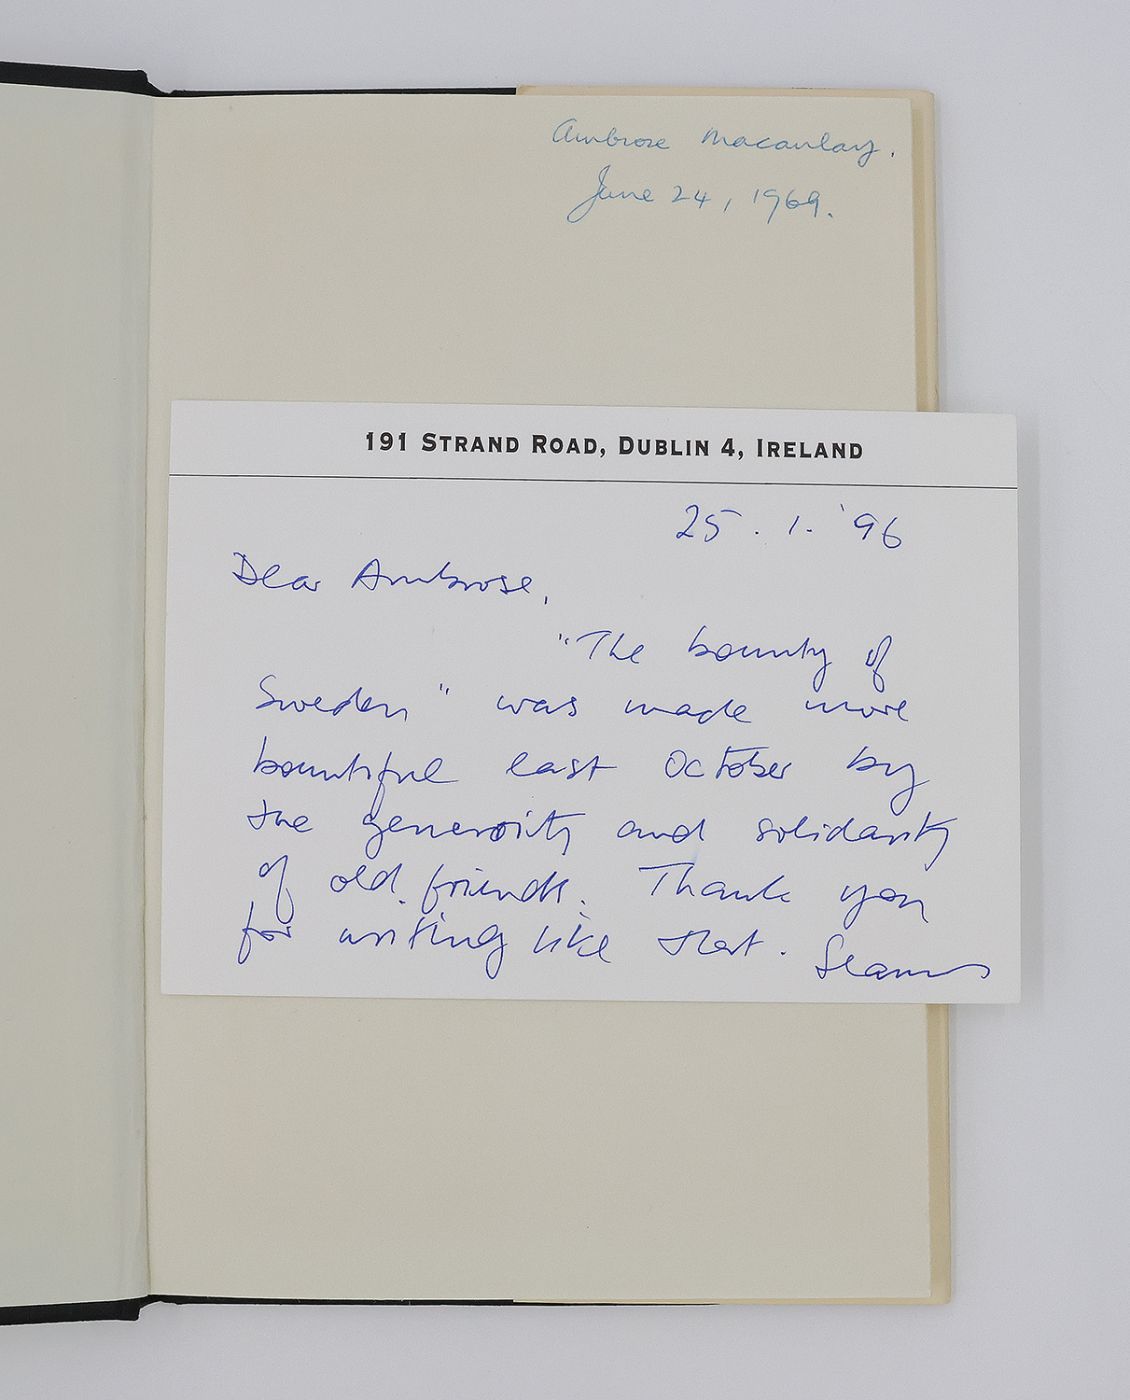 Ambrose Macaulay.
June 24, 1969.
191 STRAND ROAD, DUBLIN 4, IRELAND
25. 1. '96
Dear Ambrose,
"The bounty of
Sweden" was made more
bountiful last October by
the generosity and solidarity
of old friends. Thank you
for writing like that. Seamus